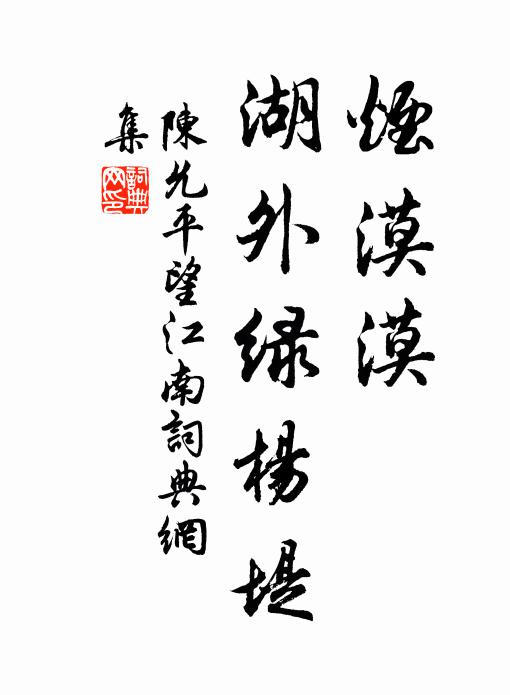 煙漠漠
湖外绿楊堤
陳允平望江南詞典網
集
詞典網印